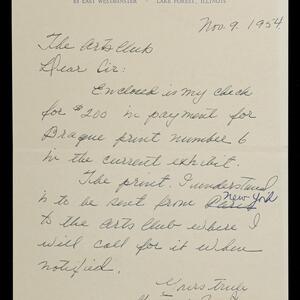 83 EAST WESTMINSTER · LAKE FOREST, ILLINOIS
Nov. 9. 1954
The Arts Club
Dear Sir:
Enclosed is my check
for $200 in payment for
Braque print number 6
in the current exhibit.
The print, I understand
is to be sent from Paris New York
to the Arts Club where I
will call for it when
notified.
Yours truly